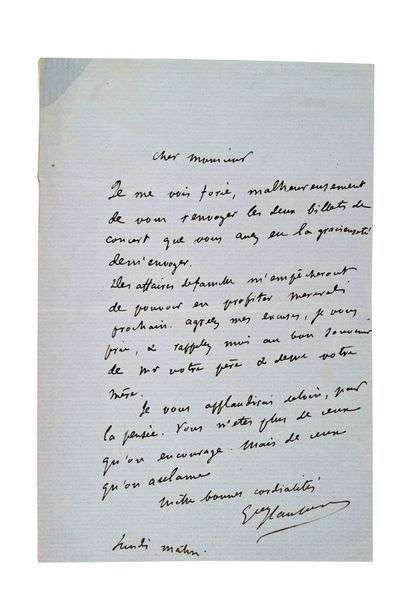 Cher Monsieur
Je me vois forcé, malheureusement
de vous renvoyer les deux billets de
concert que vous avez eu la gracieuseté
de m'envoyer.
Des affaires de famille m'empêcheront
de pouvoir en profiter mercredi
prochain. agréez mes excuses, je vous
prie, & rappelez moi au bon souvenir
de Mr votre père & de Mme votre
mère.
Je vous applaudirai de loin, par
la pensée. Vous n'êtes plus de ceux
qu'on encourage. Mais de ceux
qu'on acclame
Mille bonnes cordialités
Gve Flaubert
Lundi matin.